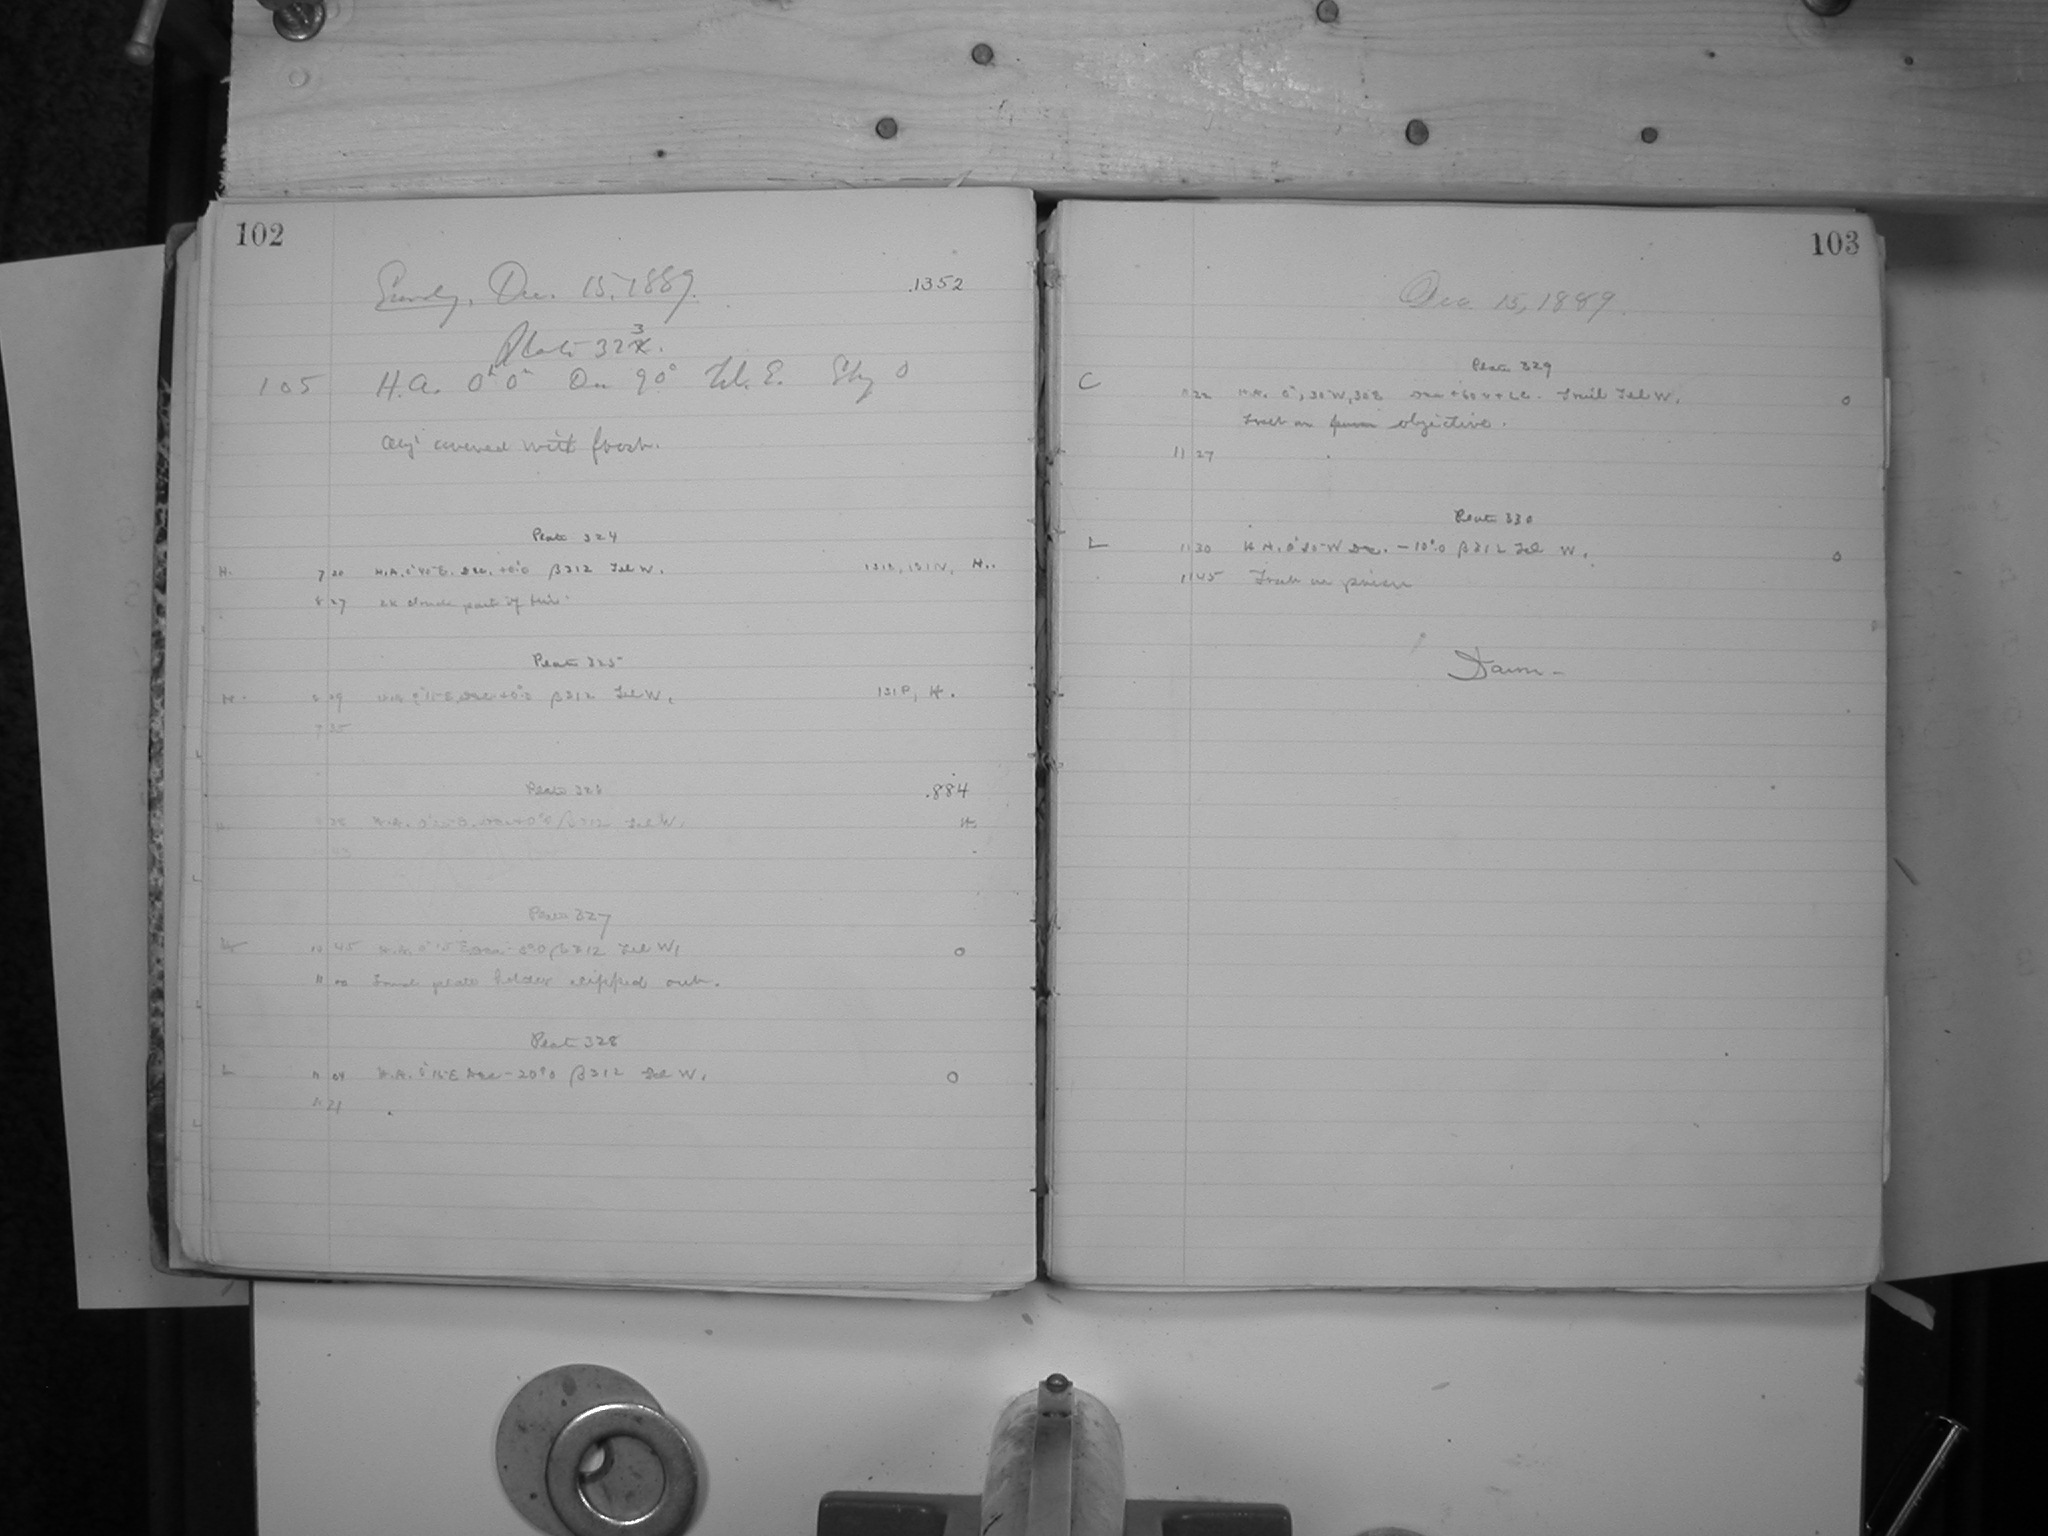 102
Sunday, Dec. 15, 1889.
.1352
Plate 323.
105 H.A. 0h 0m Dec 90° Tel. E. Sky 0
Obj covered with frost.
Plate 324
H. 7 20 H.A. 0h 40m E. Dec. +0°0 β312 Tel W. H.
8 27 clouds part of time
Plate 325
H. 29 Dec +0°0 β312 Tel W. 131P, H.
35
Plate 326
.884
H. 38 H.A. Dec +0°0 β312 Tel W. H.
Plate 327
10 45 H.A. Dec β312 Tel W. 0
11 00 Found plate holder slipped out.
Plate 328
L 11 04 H.A. 0h 15m E Dec -20°0 β312 Tel W. 0
21
103
Dec 15, 1889.
Plate 329
C 22 H.A. 0h, 30m W, 30m E Dec +60 Trail Tel W. 0
Frost on objective.
11 27
Plate 330
L 11 30 H.A. Dec. -10°0 β312 Tel W. 0
11 45 Frost on prism
Dawn-